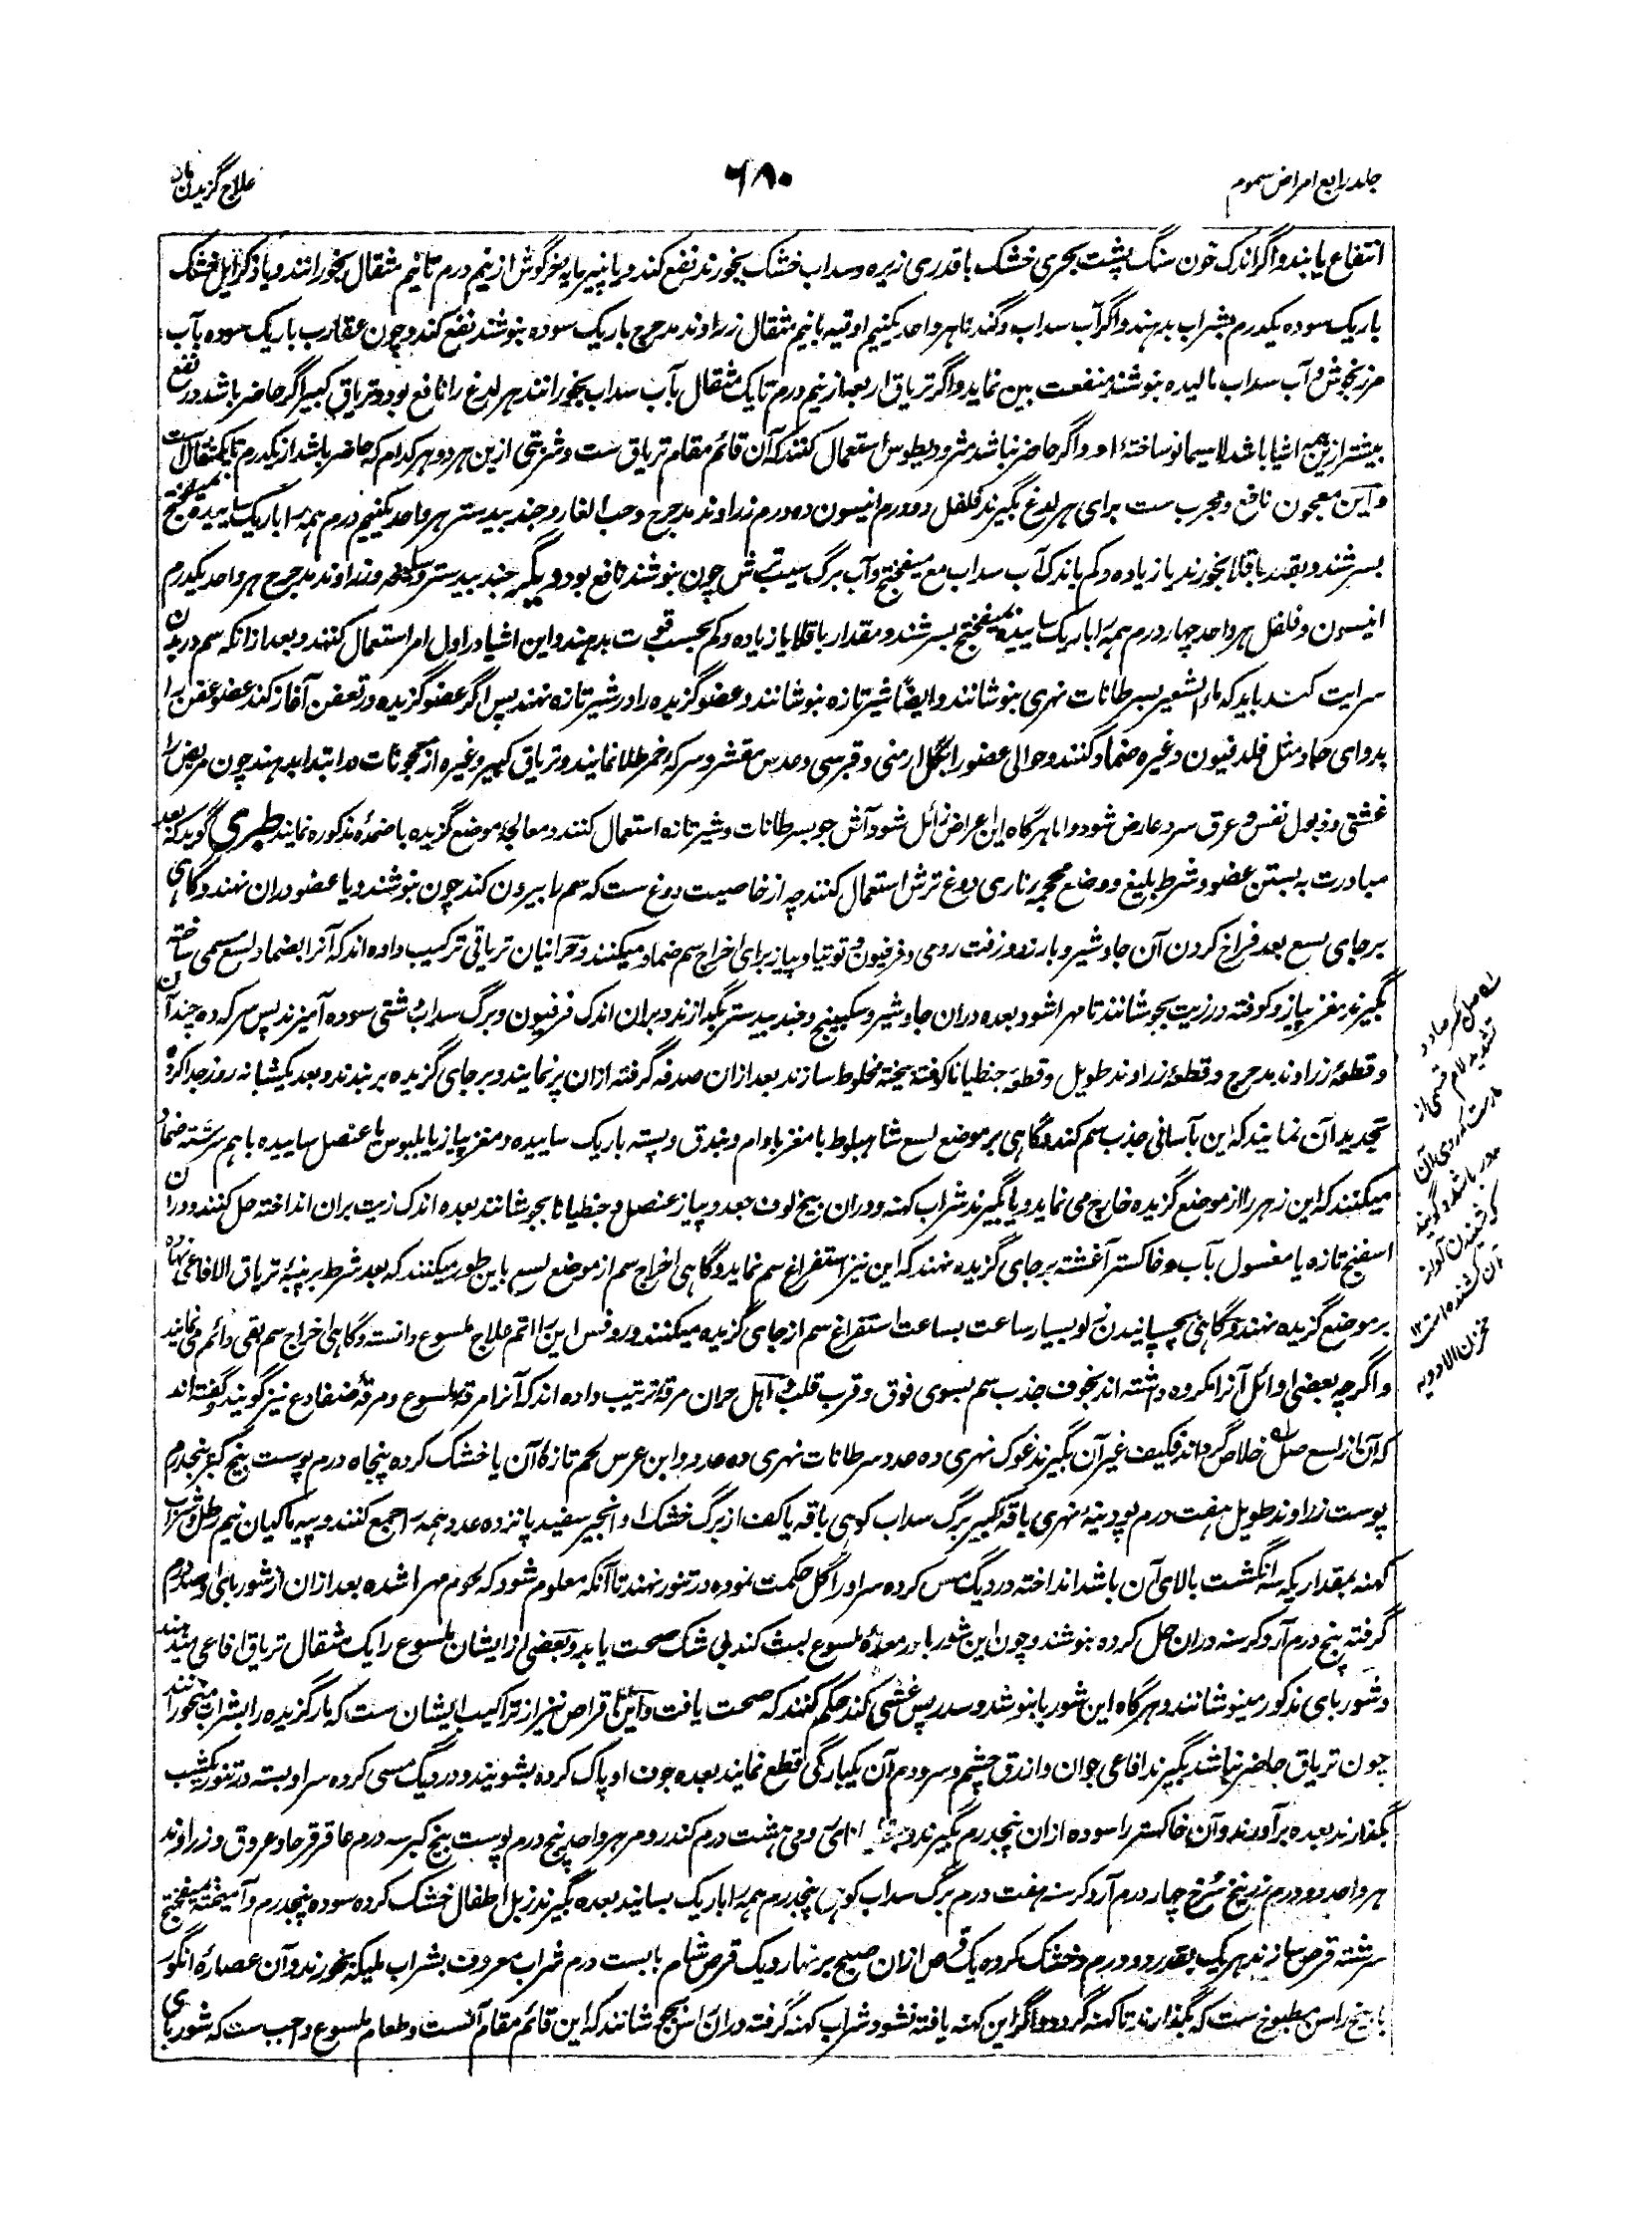 جلد رابع امراض سموم
۶۸۰
علاج گزیدن مار
انتفاع یابند و اگر اندک خون سنگ پشت بحری خشک با قدری زیره و سداب خشک بخورند نفع کند و یا پنیر مایه خرگوش از نیم درم تا نیم مثقال بخورانند و یا ذکر ایل خشک
باریک سوده یکدرم بشراب بدهند و اگر آب سداب و گندنا هر واحد یکنیم اوقیه با نیم مثقال زراوند مدحرج باریک سوده بنوشند نفع کند و چون عقارب باریک سوده بآب
مرزنجوش و آب سداب مالیده بنوشند منفعت بین نماید و اگر تریاق اربعه از نیم درم تا یک مثقال بآب سداب بخورانند هر لدغ را نافع بود و تریاق کبیر اگر حاضر باشد در نفع
بیشتر ازین همه اشیا باشد لاسیما نو ساخته او و اگر حاضر نباشد مثرودیطوس استعمال کنند که آن قائم مقام تریاق ست و شربتی ازین هر دو هر کدام که حاضر باشد از یکدرم تا یکمثقال ست
و این معجون نافع و مجرب ست برای هر لدغ بگیرند فلفل ده درم انیسون ده درم زراوند مدحرج و حب الغار و جند بیدستر هر واحد یکنیم درم همه را باریک ساییده بمیفختج
بسرشند و بقدر باقلا بخورند یا زیاده و کم باندک آب سداب مع میفختج و آب برگ سیب ترش چون بنوشند نافع بود دیگر جند بیدستر و سلیخه و زراوند مدحرج هر واحد یکدرم
انیسون و فلفل هر واحد چهار درم همه را باریک ساییده بمیفختج بسرشند و مقدار باقلا یا زیاده و کم بحسب قوت بدهند و این اشیا در اول امر استعمال کنند و بعد ازانکه سم در بدن
سرایت کند باید که ماء الشعیر بسرطانات نهری بنوشانند و ایضاً شیر تازه بنوشانند و عضو گزیده را در شیر تازه نهند پس اگر عضو گزیده در تعفن آغاز کند عضو عفن را
بدوای حاد مثل فلدفیون وغیره ضماد کنند و حوالی عضو را بگل ارمنی و قبرسی و عدس مقشر و سرکه و خمر طلا نمایند و تریاق کبیر وغیره از معجونات در ابتدا بدهند چون مریض را
غشی و ذبول نفس و عرق سرد عارض شود و اما هرگاه این اعراض زائل شود آش جو بسرطانات و شیر تازه استعمال کنند و معالجه موضع گزیده باضمده مذکوره نمایند طبری گوید که بعد
مبادرت به بستن عضو و شرط بلیغ و وضع محجمه ناری دوغ ترش استعمال کنند چه از خاصیت دوغ ست که سم را بیرون کند چون بنوشند و یا عضو دران نهند و گاهی
بر جای لسع بعد فراخ کردن آن جاوشیر و بارزد و زفت رومی و فرفیون و توتیا و پیاز برای اخراج سم ضماد میکنند و حرانیان تریاقی ترکیب داده اند که آنرا بضماد لسع مسمی ساخته
بگیرند مغز پیاز و کوفته در زیت بجوشانند تا مهرا شود بعده دران جاوشیر و سکبینج و جند بیدستر بگدازند و بران اندک فرفیون و برگ سداب دشتی سوده آمیزند پس سرکه ده چند آن
و قطعه زراوند مدحرج و قطعه زراوند طویل و قطعه جنطیانا کوفته بیخته مخلوط سازند بعد ازان صدفه گرفته ازان پر نمایند و بر جای گزیده بربندند و بعد یکشبانه روز جدا کرده
تجدید آن نمایند که این بآسانی جذب سم کند و گاهی بر موضع لسع شاهبلوط با مغز بادام و بندق و پسته باریک ساییده و مغز پیاز یا بلبوس یا عنصل ساییده باهم سرشته ضماد
میکنند که این زهر را از موضع گزیده خارج می نماید و یا بگیرند شراب کهنه و دران بیخ لوف جعد و پیاز عنصل و جنطیانا بجوشانند بعده اندک زیت بران انداخته حل کنند و دران
اسفنج تازه یا مغسول بآب و خاکستر آغشته بر جای گزیده نهند که این نیز استفراغ سم نماید و گاهی اخراج سم از موضع لسع باین طور میکنند که بعد شرط بر پنبه تریاق الافاعی نهاده
بر موضع گزیده نهند و گاهی بچسپانیدن زلو بسیار ساعت بساعت استفراغ سم از جای گزیده میکنند و روفس این را اتم علاج ملسوع دانسته و گاهی اخراج سم بقی دائم می نمایند
و اگرچه بعضی اوائل آنرا مکروه داشته اند بخوف جذب سم بسوی فوق و قرب قلب و اهل حران مرقه ترتیب داده اند که آنرا مرقه ملسوع و مرقه ضفادع نیز گویند و گفته اند
که آن از لسع صل خلاص گرداند فکیف غیر آن بگیرند غوک نهری ده عدد سرطانات نهری ده عدد و ابن عرس لحم تازه آن یا خشک کرده پنجاه درم پوست بیخ کبر پنجدرم
پوست زراوند طویل هفت درم پودینه نهری باقه کبیر برگ سداب کوهی باقه یا کف از برگ خشک او انجیر سفید پانزده عدد همه را جمع کنند و پیه ماکیان نیم رطل و شراب
کهنه بمقداریکه سه انگشت بالای آن باشد انداخته در دیگ مس کرده سر او را گل حکمت نموده در تنور نهند تا آنکه معلوم شود که لحوم مهرا شده بعد ازان از شوربای او صد درم
گرفته پنج درم آرد کرسنه دران حل کرده بنوشند و چون این شوربا در معده ملسوع لبث کند بی شک صحت یابد و بعضی از ایشان ملسوع را یک مثقال تریاق افاعی میدهند
و شوربای مذکور مینوشانند و هرگاه این شوربا بنوشد و سدر پس غشی کند حکم کنند که صحت یافت و این اقراص نیز از تراکیب ایشان ست که مار گزیده را بشراب میخورانند
چون تریاق حاضر نباشد بگیرند افاعی جوان و ازرق چشم و سر و دم آن یکبارگی قطع نمایند بعده جوف او پاک کرده بشویند و در دیگ مسی کرده سر او بسته در تنور یکشب
بگذارند بعده برآورند و آن خاکستر را سوده ازان پنجدرم بگیرند و رومی هشت درم کندر و مر هر واحد پنج درم پوست بیخ کبر سه درم عاقرقرحا و عروق و زراوند
هر واحد دو درم زرنیخ سرخ چهار درم آرد کرسنه هفت درم برگ سداب کوهی پنجدرم همه را باریک بسایند بعده بگیرند زبل اطفال خشک کرده سوده پنجدرم و آمیخته بمیفختج
سرشته قرص سازند هر یک بقدر دو درم و خشک کرده یک قرص ازان صبح بر نهار و یک قرص شام با بست درم شراب معروف بشراب ملیکه بخورند و آن عصاره انگور
با بیخ راسن مطبوخ ست که بگذارند تا کهنه گردد و اگر این کهنه یافته نشود شراب کهنه گرفته دران راسن بجوشانند که این قائم مقام آنست و طعام ملسوع واجب ست که شوربای
له صل بکسر صاد و
تشدید لام قسمی از
مارست که روی آن
مدور باشد و گویند
که شنیدن آواز
آن کشنده است ۱۲
مخزن الادویه